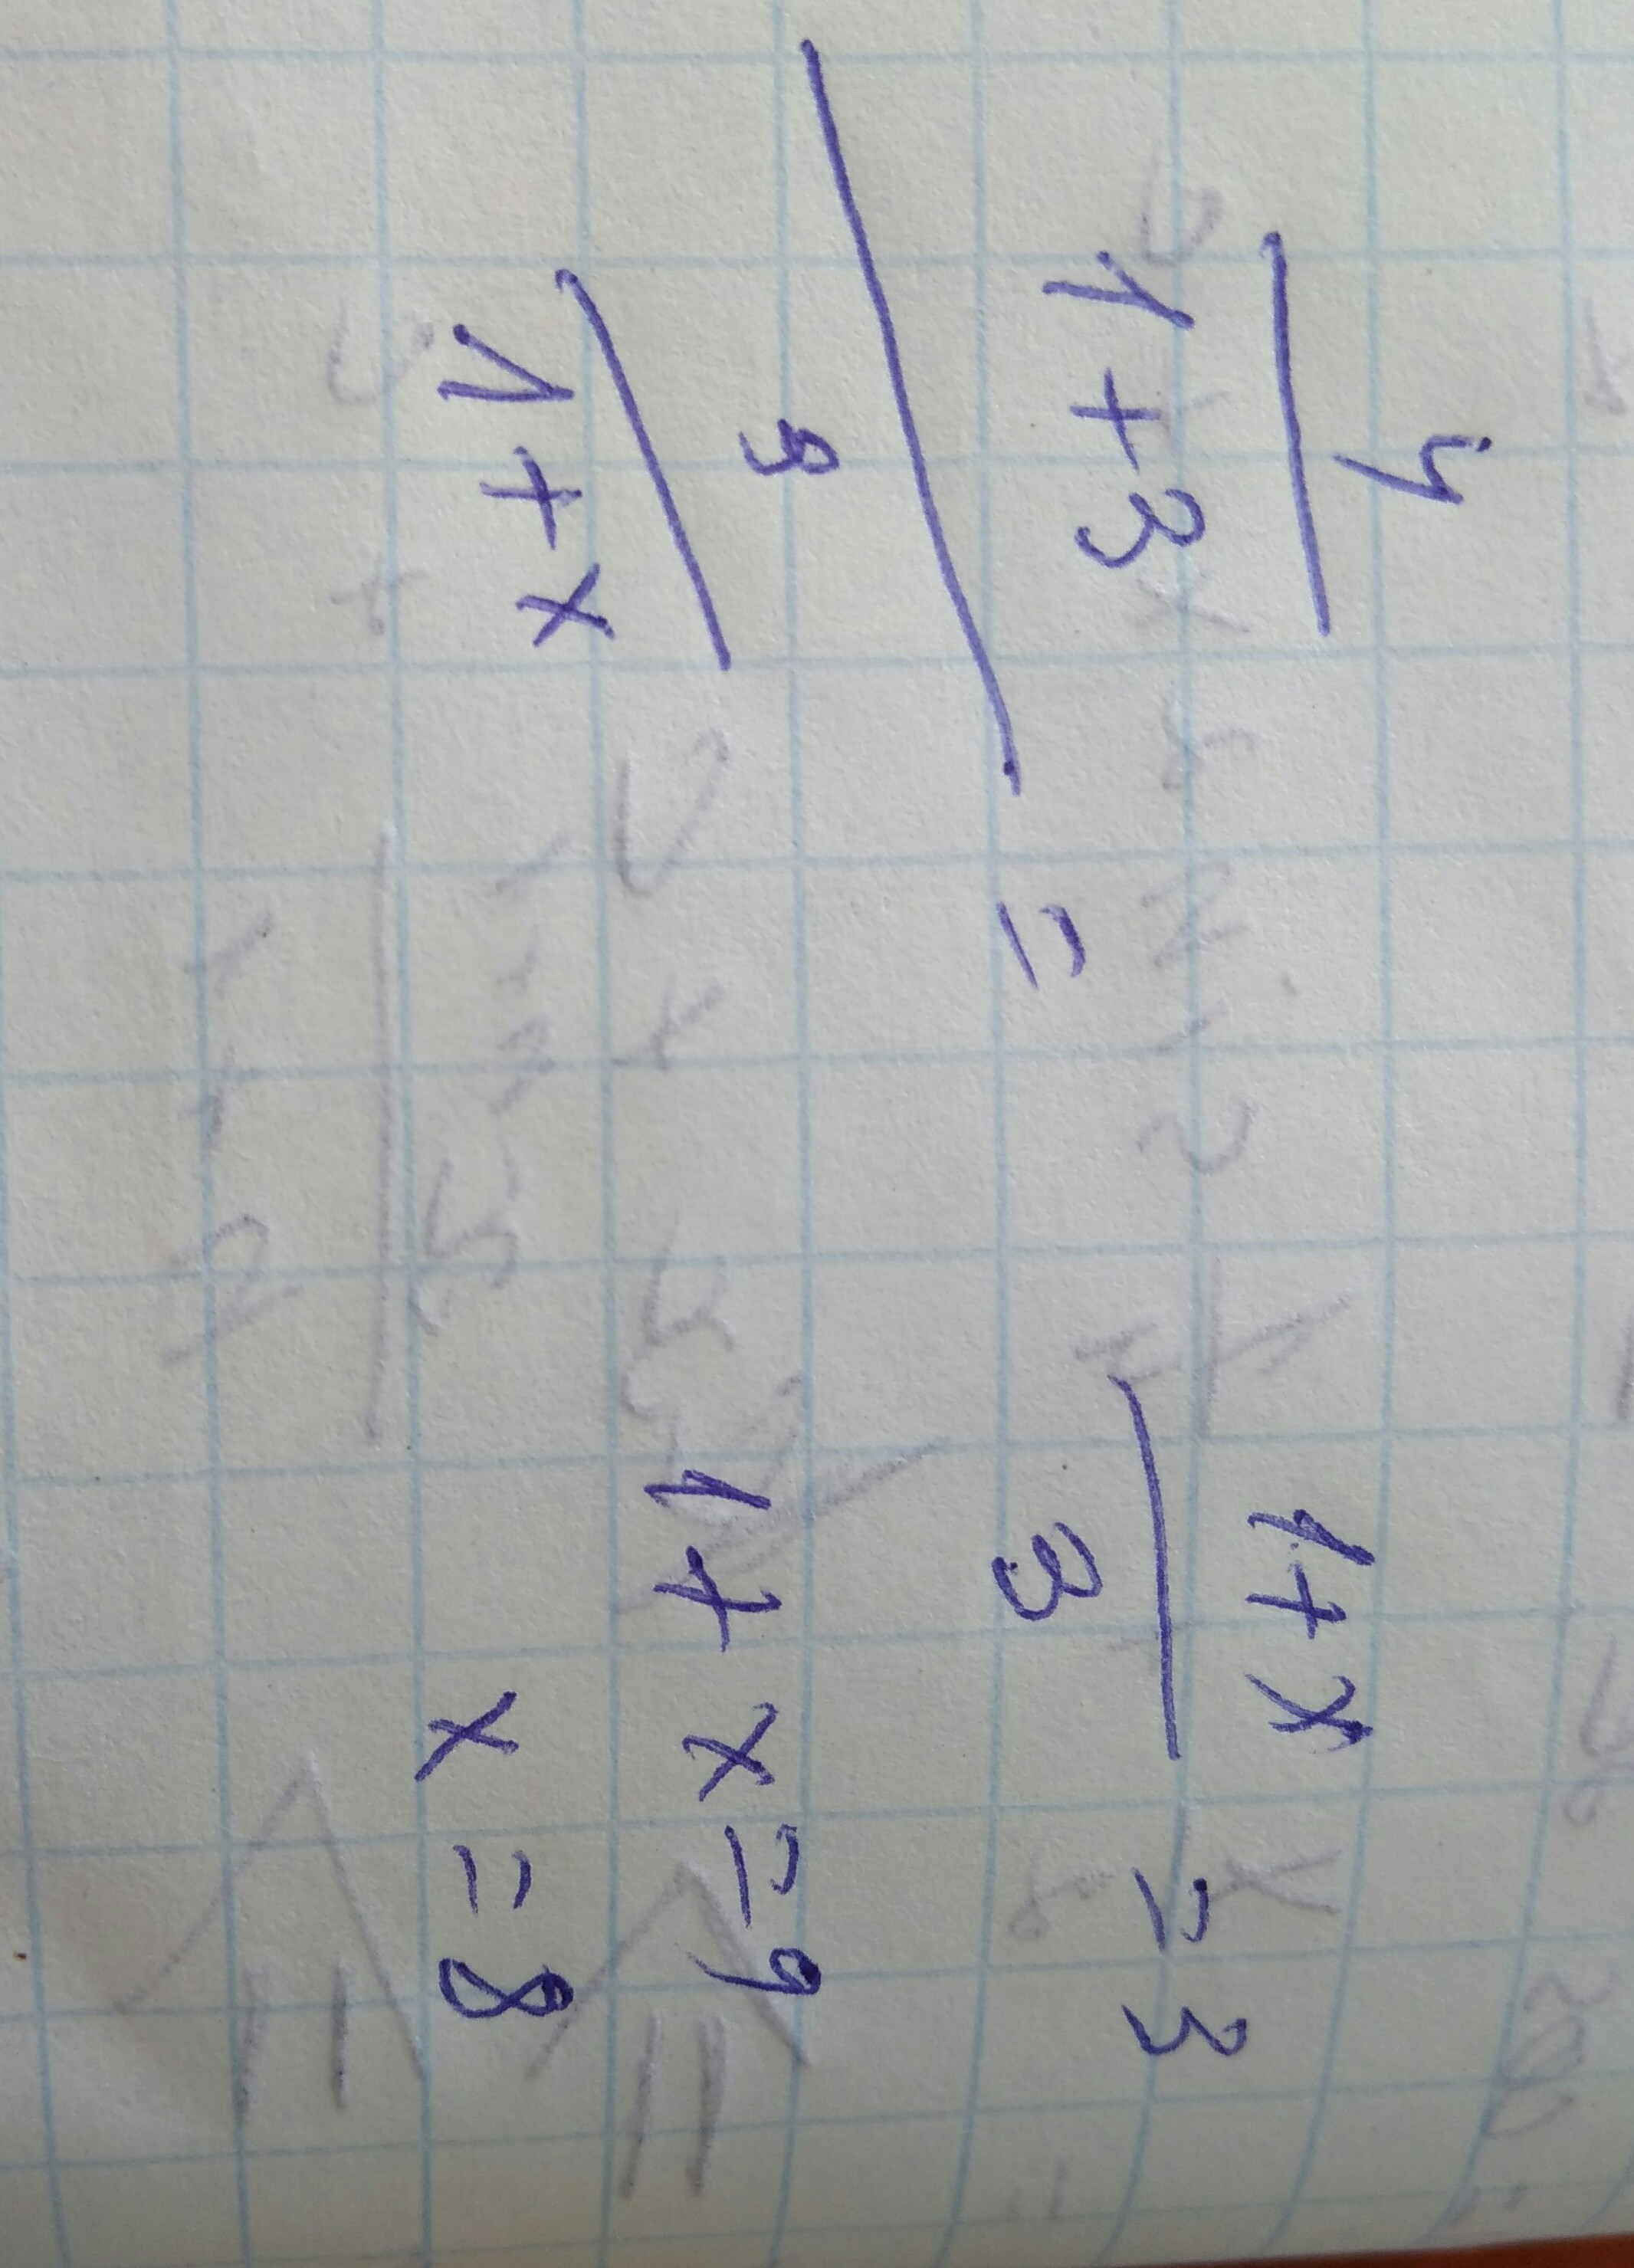 y
1+3
9
1+x
=
1+x
3
= 3
1+x=9
x=8